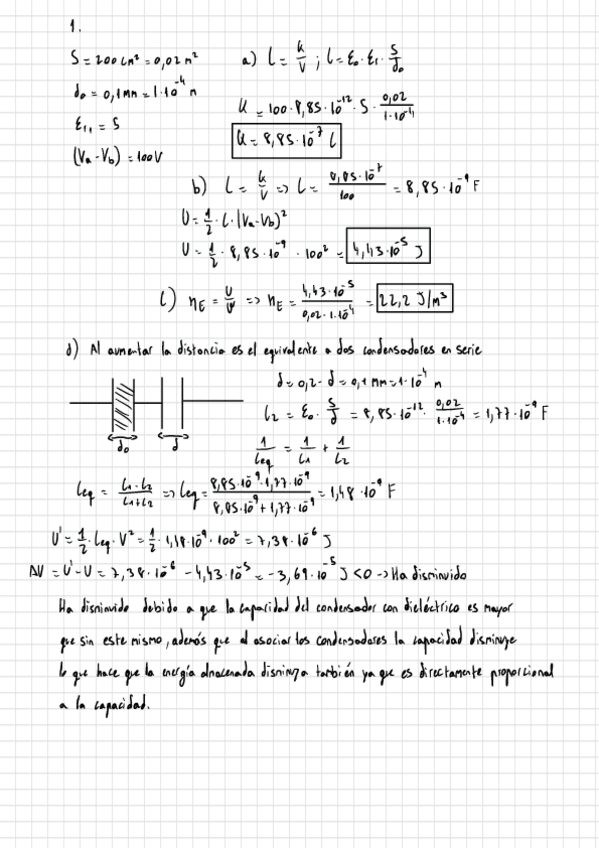 1.
S = 200 cm² = 0,02 m²
a) C = k/V ; C = ε₀ · ε₁ · S/d₀
d₀ = 0,1 mm = 1·10⁻⁴ m
k = 100 · 8,85·10⁻¹² · 5 · 0,02/1·10⁻⁴
ε₁₁ = 5
k = 8,85·10⁻⁷ C
(Va - Vb) = 100V
b) C = k/V => C = 8,85·10⁻⁷/100 = 8,85·10⁻⁹ F
U = 1/2 · C · (Va-Vb)²
U = 1/2 · 8,85·10⁻⁹ · 100² = 4,43·10⁻⁵ J
c) nE = U/V => nE = 4,43·10⁻⁵/0,02·1·10⁻⁴ = 22,2 J/m³
d) Al aumentar la distancia es el equivalente a dos condensadores en serie
d = 0,2 - d = 0,1 mm = 1·10⁻⁴ m
C2 = ε₀ · S/d = 8,85·10⁻¹² · 0,02/1·10⁻⁴ = 1,77·10⁻⁹ F
d₀ d
1/Ceq = 1/C1 + 1/C2
Ceq = C1·C2/C1+C2 => Ceq = 8,85·10⁻⁹·1,77·10⁻⁹/8,85·10⁻⁹+1,77·10⁻⁹ = 1,48·10⁻⁹ F
U' = 1/2 · Ceq · V² = 1/2 · 1,48·10⁻⁹ · 100² = 7,38·10⁻⁶ J
ΔU = U' - U = 7,38·10⁻⁶ - 4,43·10⁻⁵ = -3,69·10⁻⁵ J < 0 -> Ha disminuido
Ha disminuido debido a que la capacidad del condensador con dieléctrico es mayor
que sin este mismo, además que al asociar los condensadores la capacidad disminuye
lo que hace que la energía almacenada disminuya también ya que es directamente proporcional
a la capacidad.